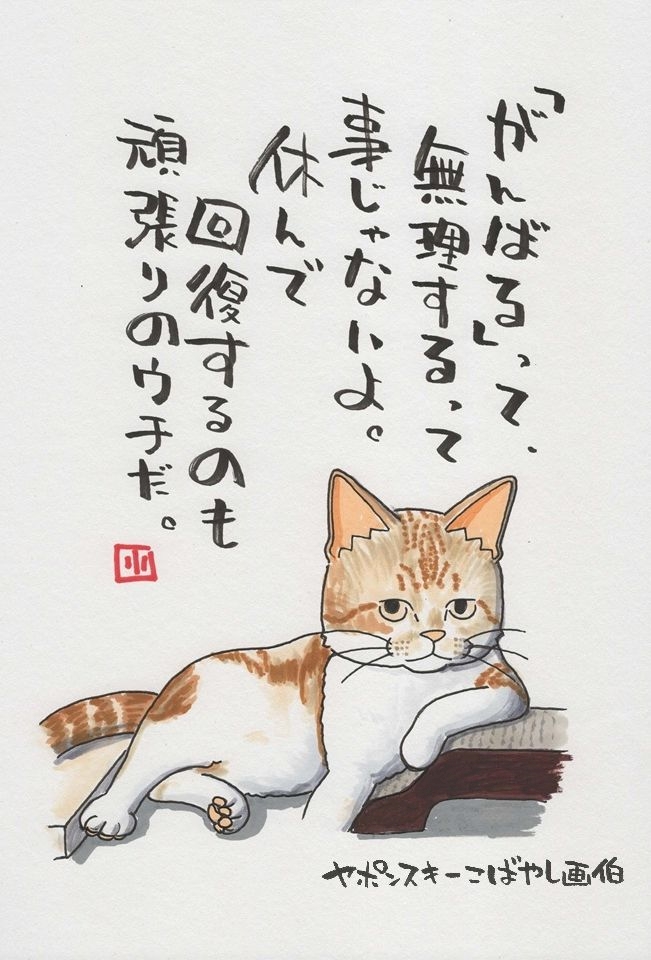 「がんばる」って、
無理するって
事じゃないよ。
休んで
回復するのも
頑張りのウチだ。
小
ヤポンスキーこばやし画伯